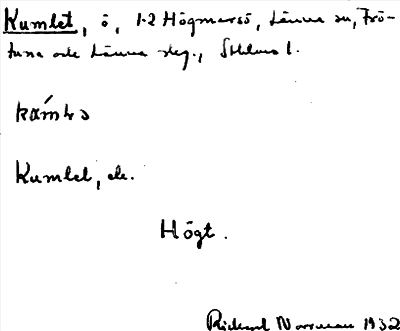 Kumlet, ö, 1.2 Högmarsö, Länna sn, Frö-
tuna och Länna skg., Sthlms l.
Kumlet, ö.
Högt.
Rickard Norrman 1932